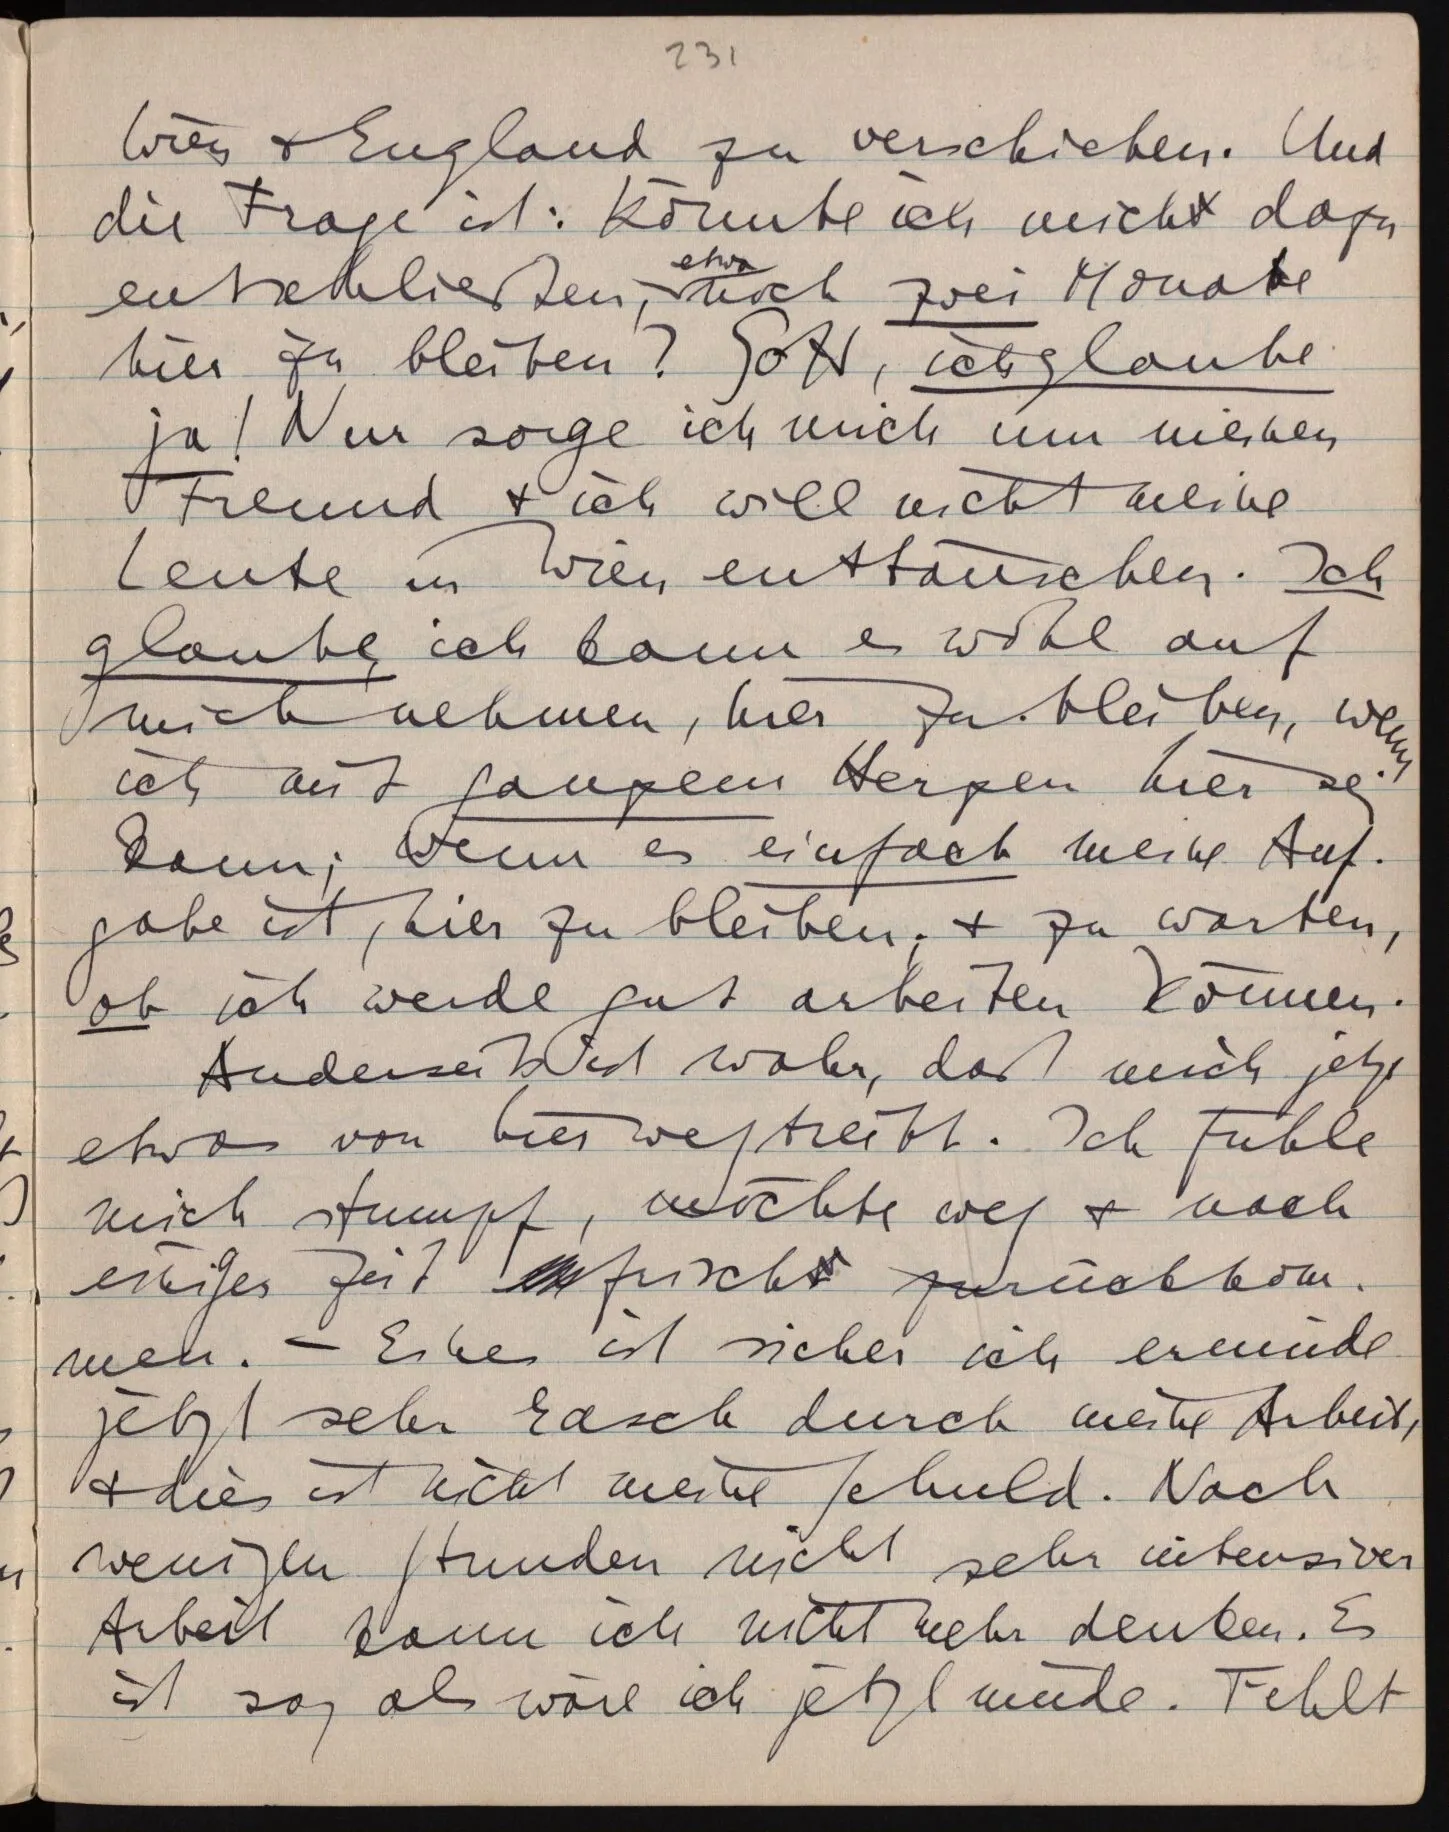 231
Wien & England zu verschieben. Und
die Frage ist: Könnte ich mich dazu
entschließen, etwa noch zwei Monate
hier zu bleiben? Gott, ich glaube
ja! Nur sorge ich mich um meinen
Freund & ich will nicht meine
Leute in Wien enttäuschen. Ich
glaube, ich kann es wohl auf
mich nehmen, hier zu bleiben, wenn
ich mit ganzem Herzen hier sein
kann; wenn es einfach meine Auf-
gabe ist, hier zu bleiben, & zu warten,
ob ich werde gut arbeiten können.
Anderseits ist wahr, daß mich jetzt
etwas von hier wegtreibt. Ich fühle
mich stumpf, möchte weg & nach
einiger Zeit frisch zurückkom-
men. – Eines ist sicher ich ermüde
jetzt sehr rasch durch meine Arbeit,
& dies ist nicht meine Schuld. Nach
wenigen Stunden nicht sehr intensiver
Arbeit kann ich nicht mehr denken. Es
ist so, als wäre ich jetzt müde. Fehlt